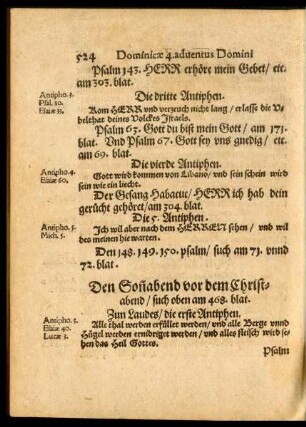 524 Dominicæ 4. aduentus Domini
Psalm 143. HERR erhöre mein Gebet / etc.
am 303. blat.
Die dritte Antiphen.
Antipho. 3.
Psal. 80.
Esaiæ 35.
Kom HERR vnd verzeuch nicht lang / erlasse die V-
belthat deines Volckes Israels.
Psalm 63. Gott du bist mein Gott / am 171.
blat. Vnd Psalm 67. Gott sey vns gnedig / etc.
am 69. blat.
Die vierde Antiphen.
Antipho. 4.
Esaiæ 60.
Gott wird kommen von Libano / vnd sein schein wird
sein wie ein liecht.
Der Gesang Habacuc / HERR ich hab dein
gerücht gehöret / am 304. blat.
Die 5. Antiphen.
Antipho. 5.
Mich. 5.
Ich wil aber nach dem HERREN sehen / vnd wil
des meinen hie warten.
Den 148. 149. 150. psalm / such am 71. vnnd
72. blat.
Den Soñabend vor dem Christ-
abend / such oben am 468. blat.
Zum Laudes / die erste Antiphen.
Antipho. 3.
Esaiæ 40.
Lucæ 3.
Alle thal werden erfüllet werden / vnd alle Berge vnnd
Hügel werden ernidriget werden / vnd alles fleisch wird se-
hen das Heil Gottes.
Psalm